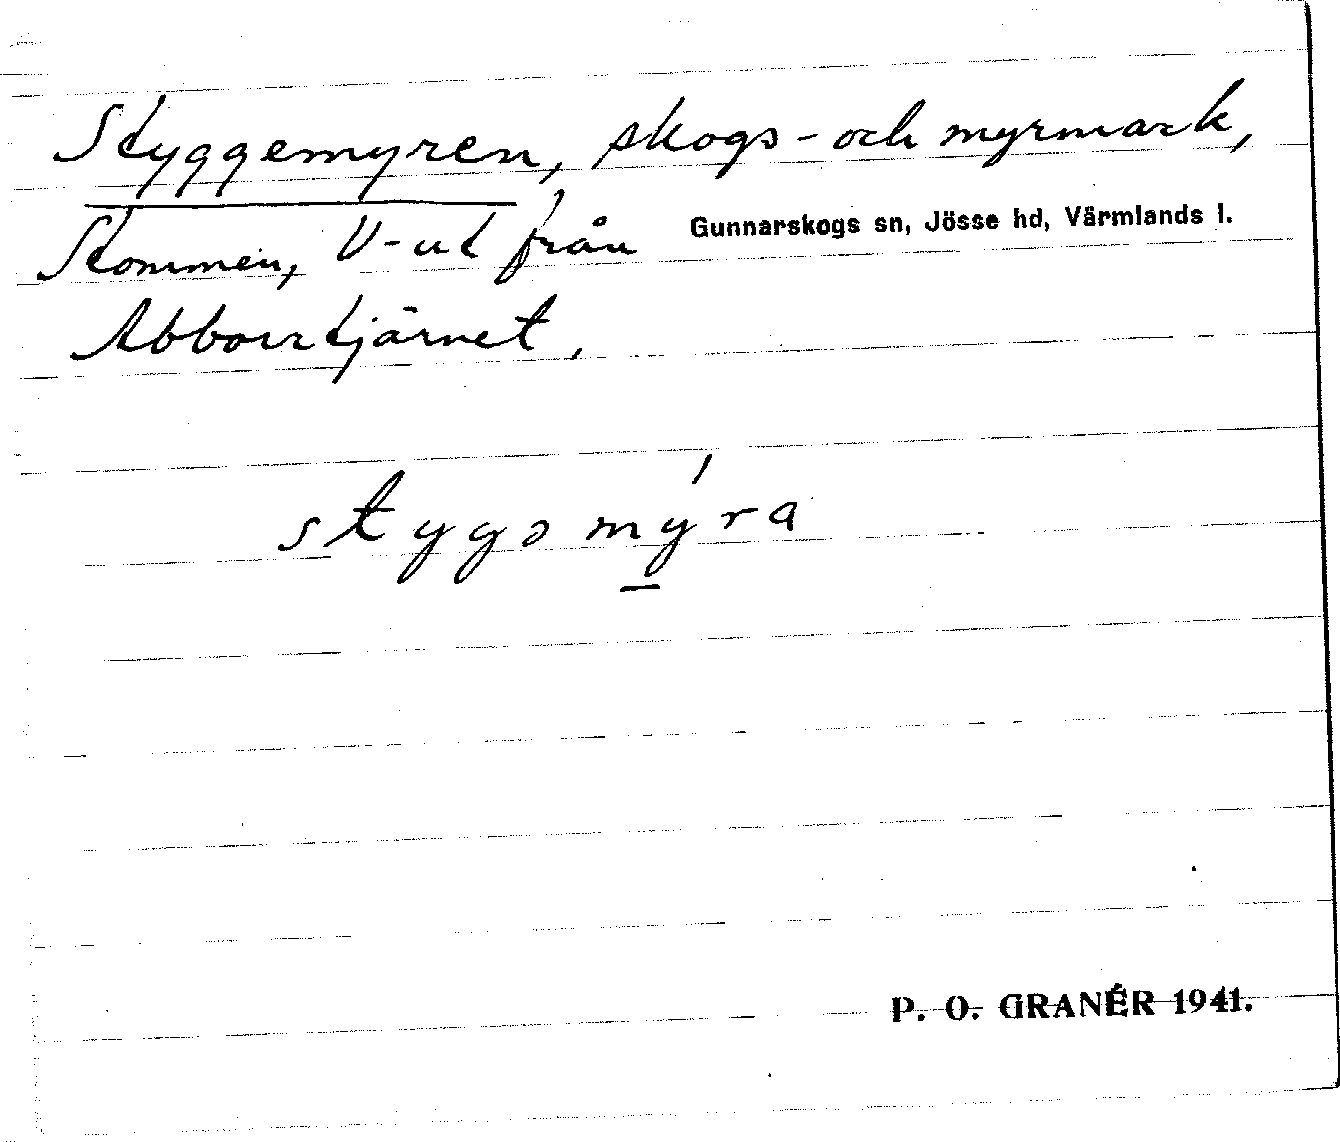 Styggemyren, skogs- och myrmark,
Gunnarskogs sn, Jösse hd, Värmlands l.
Stommen, V-ut från
Abborrtjärnet,
stygsmýra
P. O. GRANÉR 1941.